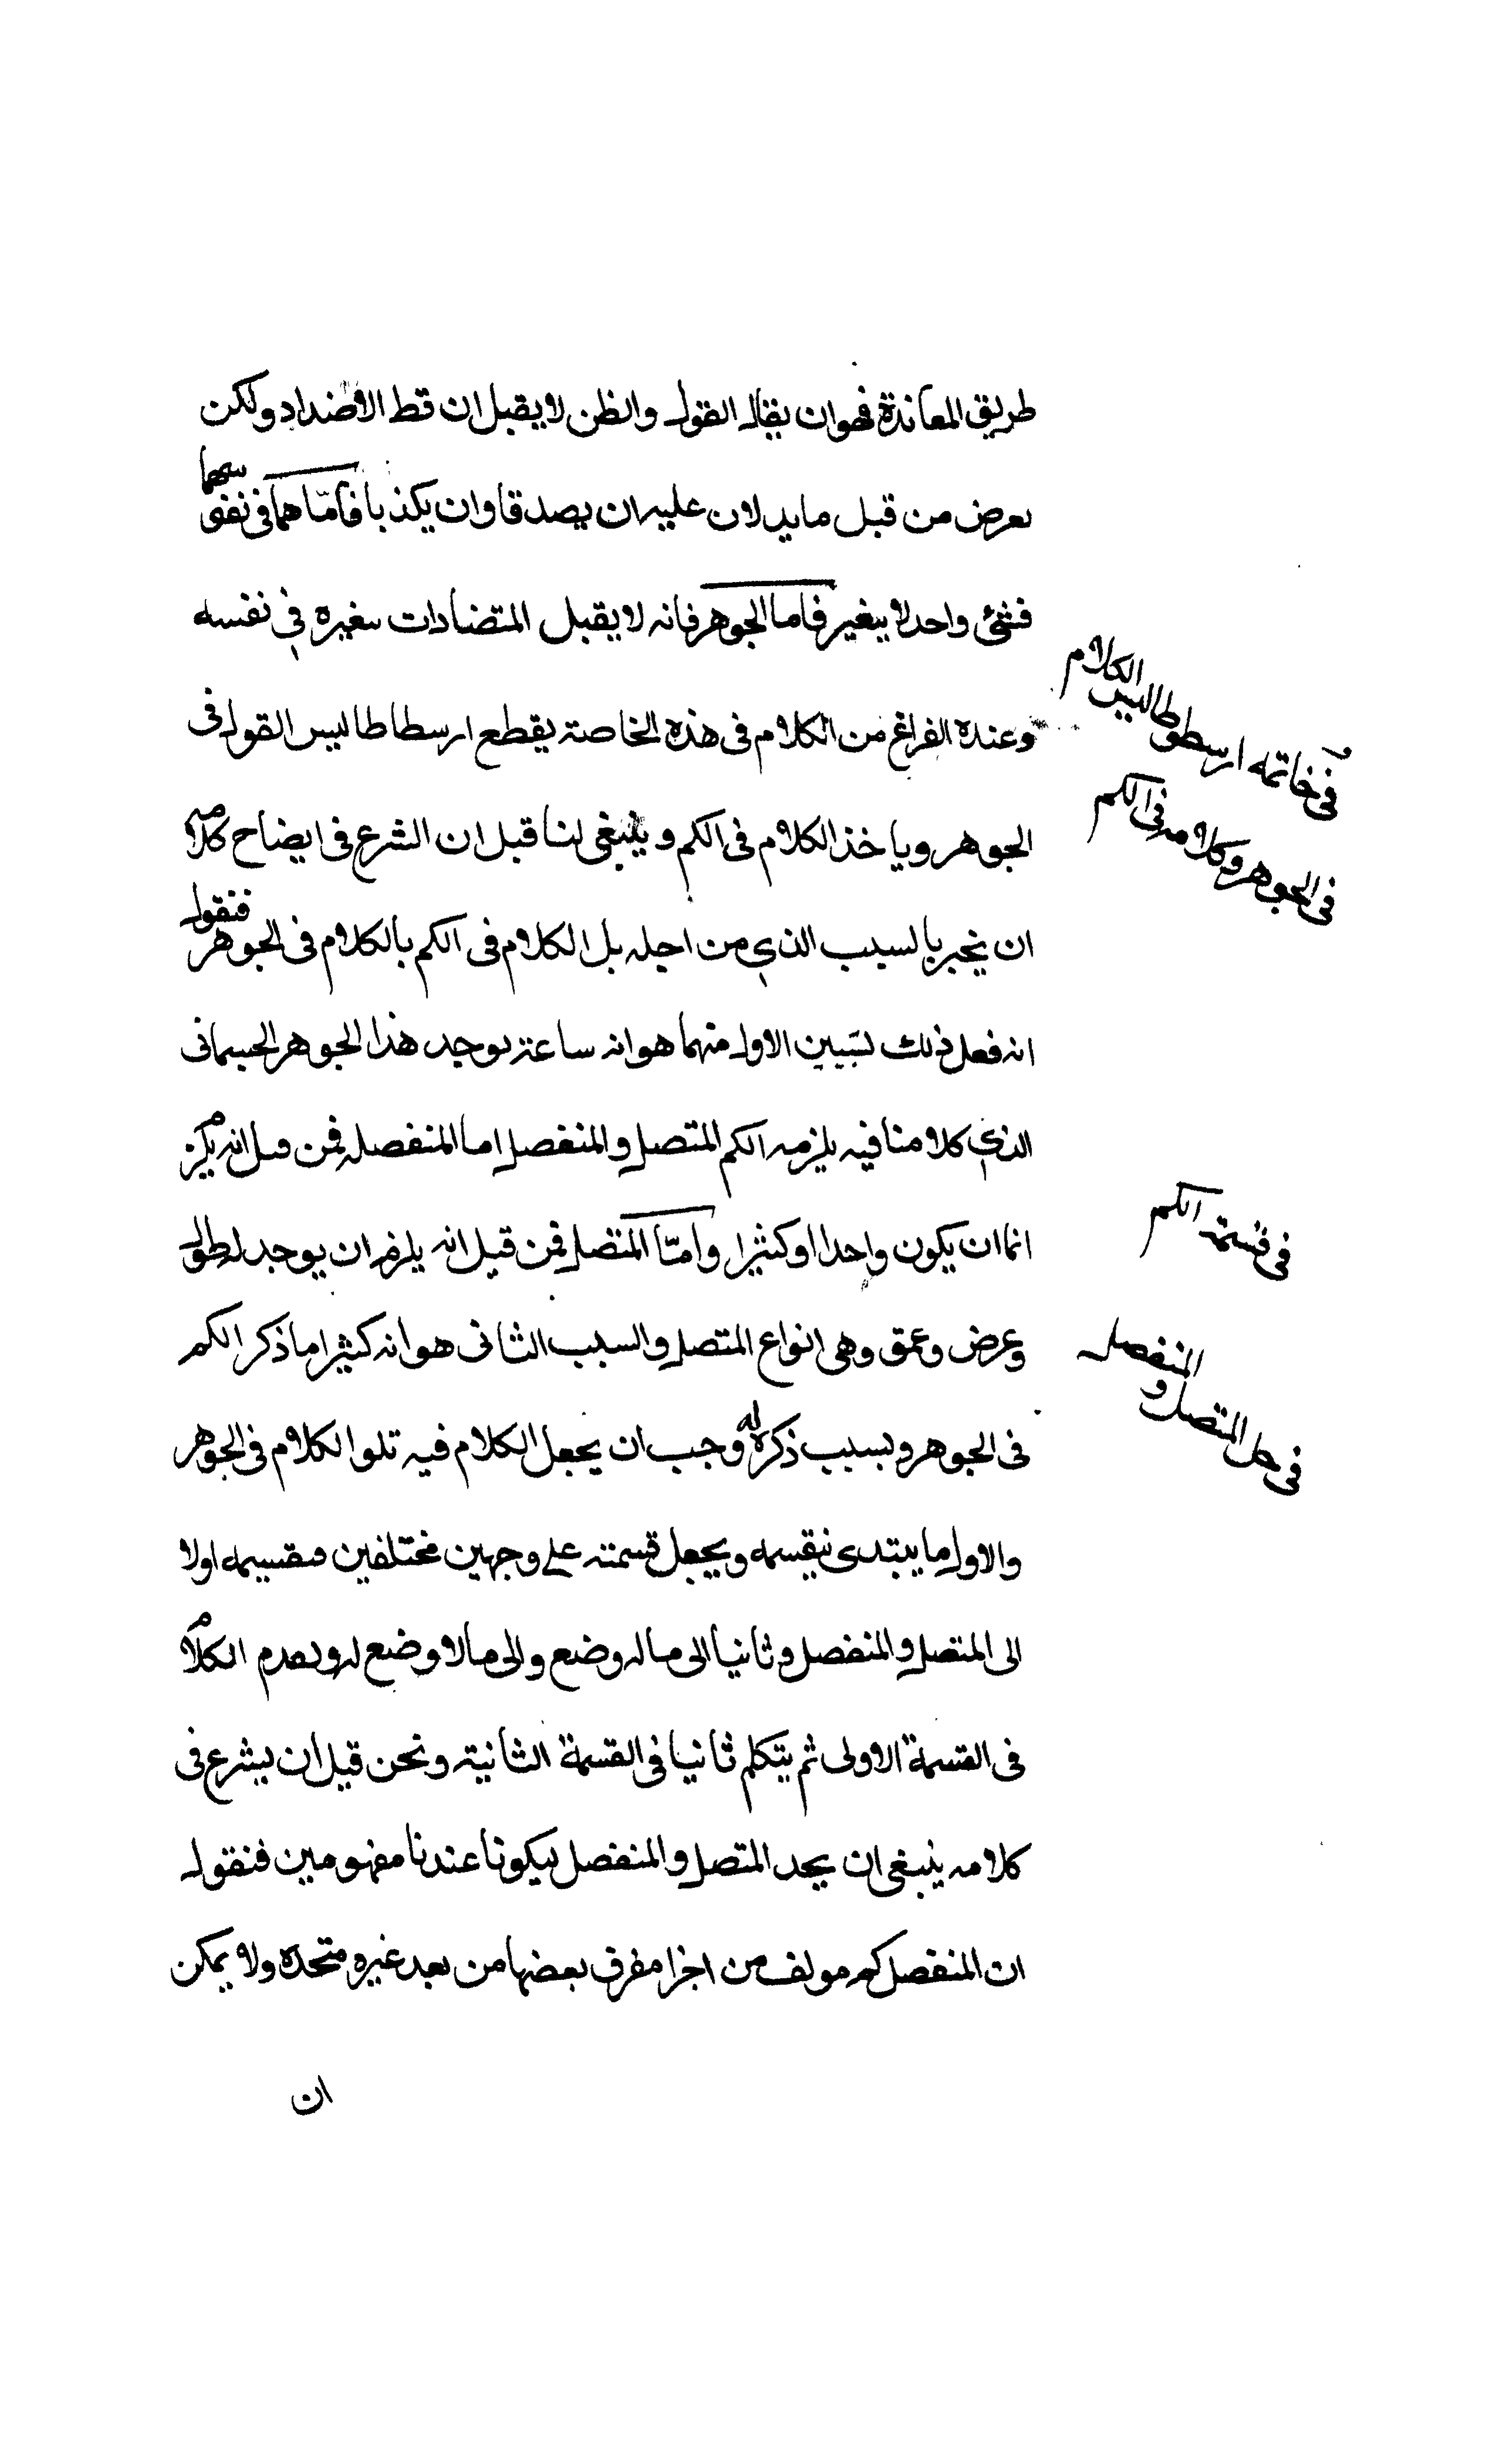 طريق المعاندة فهو ان يقال القول والظن لا يقبل ان قط الاضداد ولكن
يعرض من قبل ما يدلان عليه ان يصدقا وان يكذبا فامّا هما فى نفسيهما
فشئ واحد لا يتغير فاما الجوهر فانه لا يقبل المتضادات بتغيره في نفسه
وعنده الفراغ من الكلام فى هذه الخاصة يقطع ارسطاطاليس القول فى
الجوهر وياخذ الكلام فى الكم وينبغى لنا قبل ان الشرع فى ايضاح كلامه
ان نخبر بالسبب الذي من اجله بل الكلام فى الكم بالكلام فى الجوهر فنقول
انه فعل ذلك لسببين الاول منهما هو انه ساعة يوجد هذا الجوهر الجسمانى
الذي كلامنا فيه يلزمه الكم المتصل والمنفصل اما المنفصل فمن قبل انه يلزم
انما ان يكون واحدا او كثيرا وامّا المتصل فمن قبل انه يلزمه ان يوجد له طول
وعرض وعمق وهى انواع المتصل والسبب الثانى هو انه كثيرا ما ذكر الكم
فى الجوهر وبسبب ذكره له وجب ان يجعل الكلام فيه تلو الكلام فى الجوهر
والاول ما يبتدى بتقسيمه ويجعل قسمته على وجهين مختلفين فيقسمه اولا
الى المتصل والمنفصل وثانيا الى ما له وضع والى ما لا وضع له ويقدم الكلام
فى القسمة الاولى ثم يتكلم ثانيا فى القسمة الثانية ونحن قبل ان يشرع فى
كلامه ينبغى ان يحد المتصل والمنفصل ليكونا عندنا مفهومين فنقول
ان المنفصل كم مولف من اجزا مفرق بعضها من بعد غير متحدة ولا يمكن
ان
فى خاتمه ارسطوطاليس الكلام
فى الجوهر وكلامه فى الكم
فى قسمة الكم
فى حل المتصل و
المنفصل